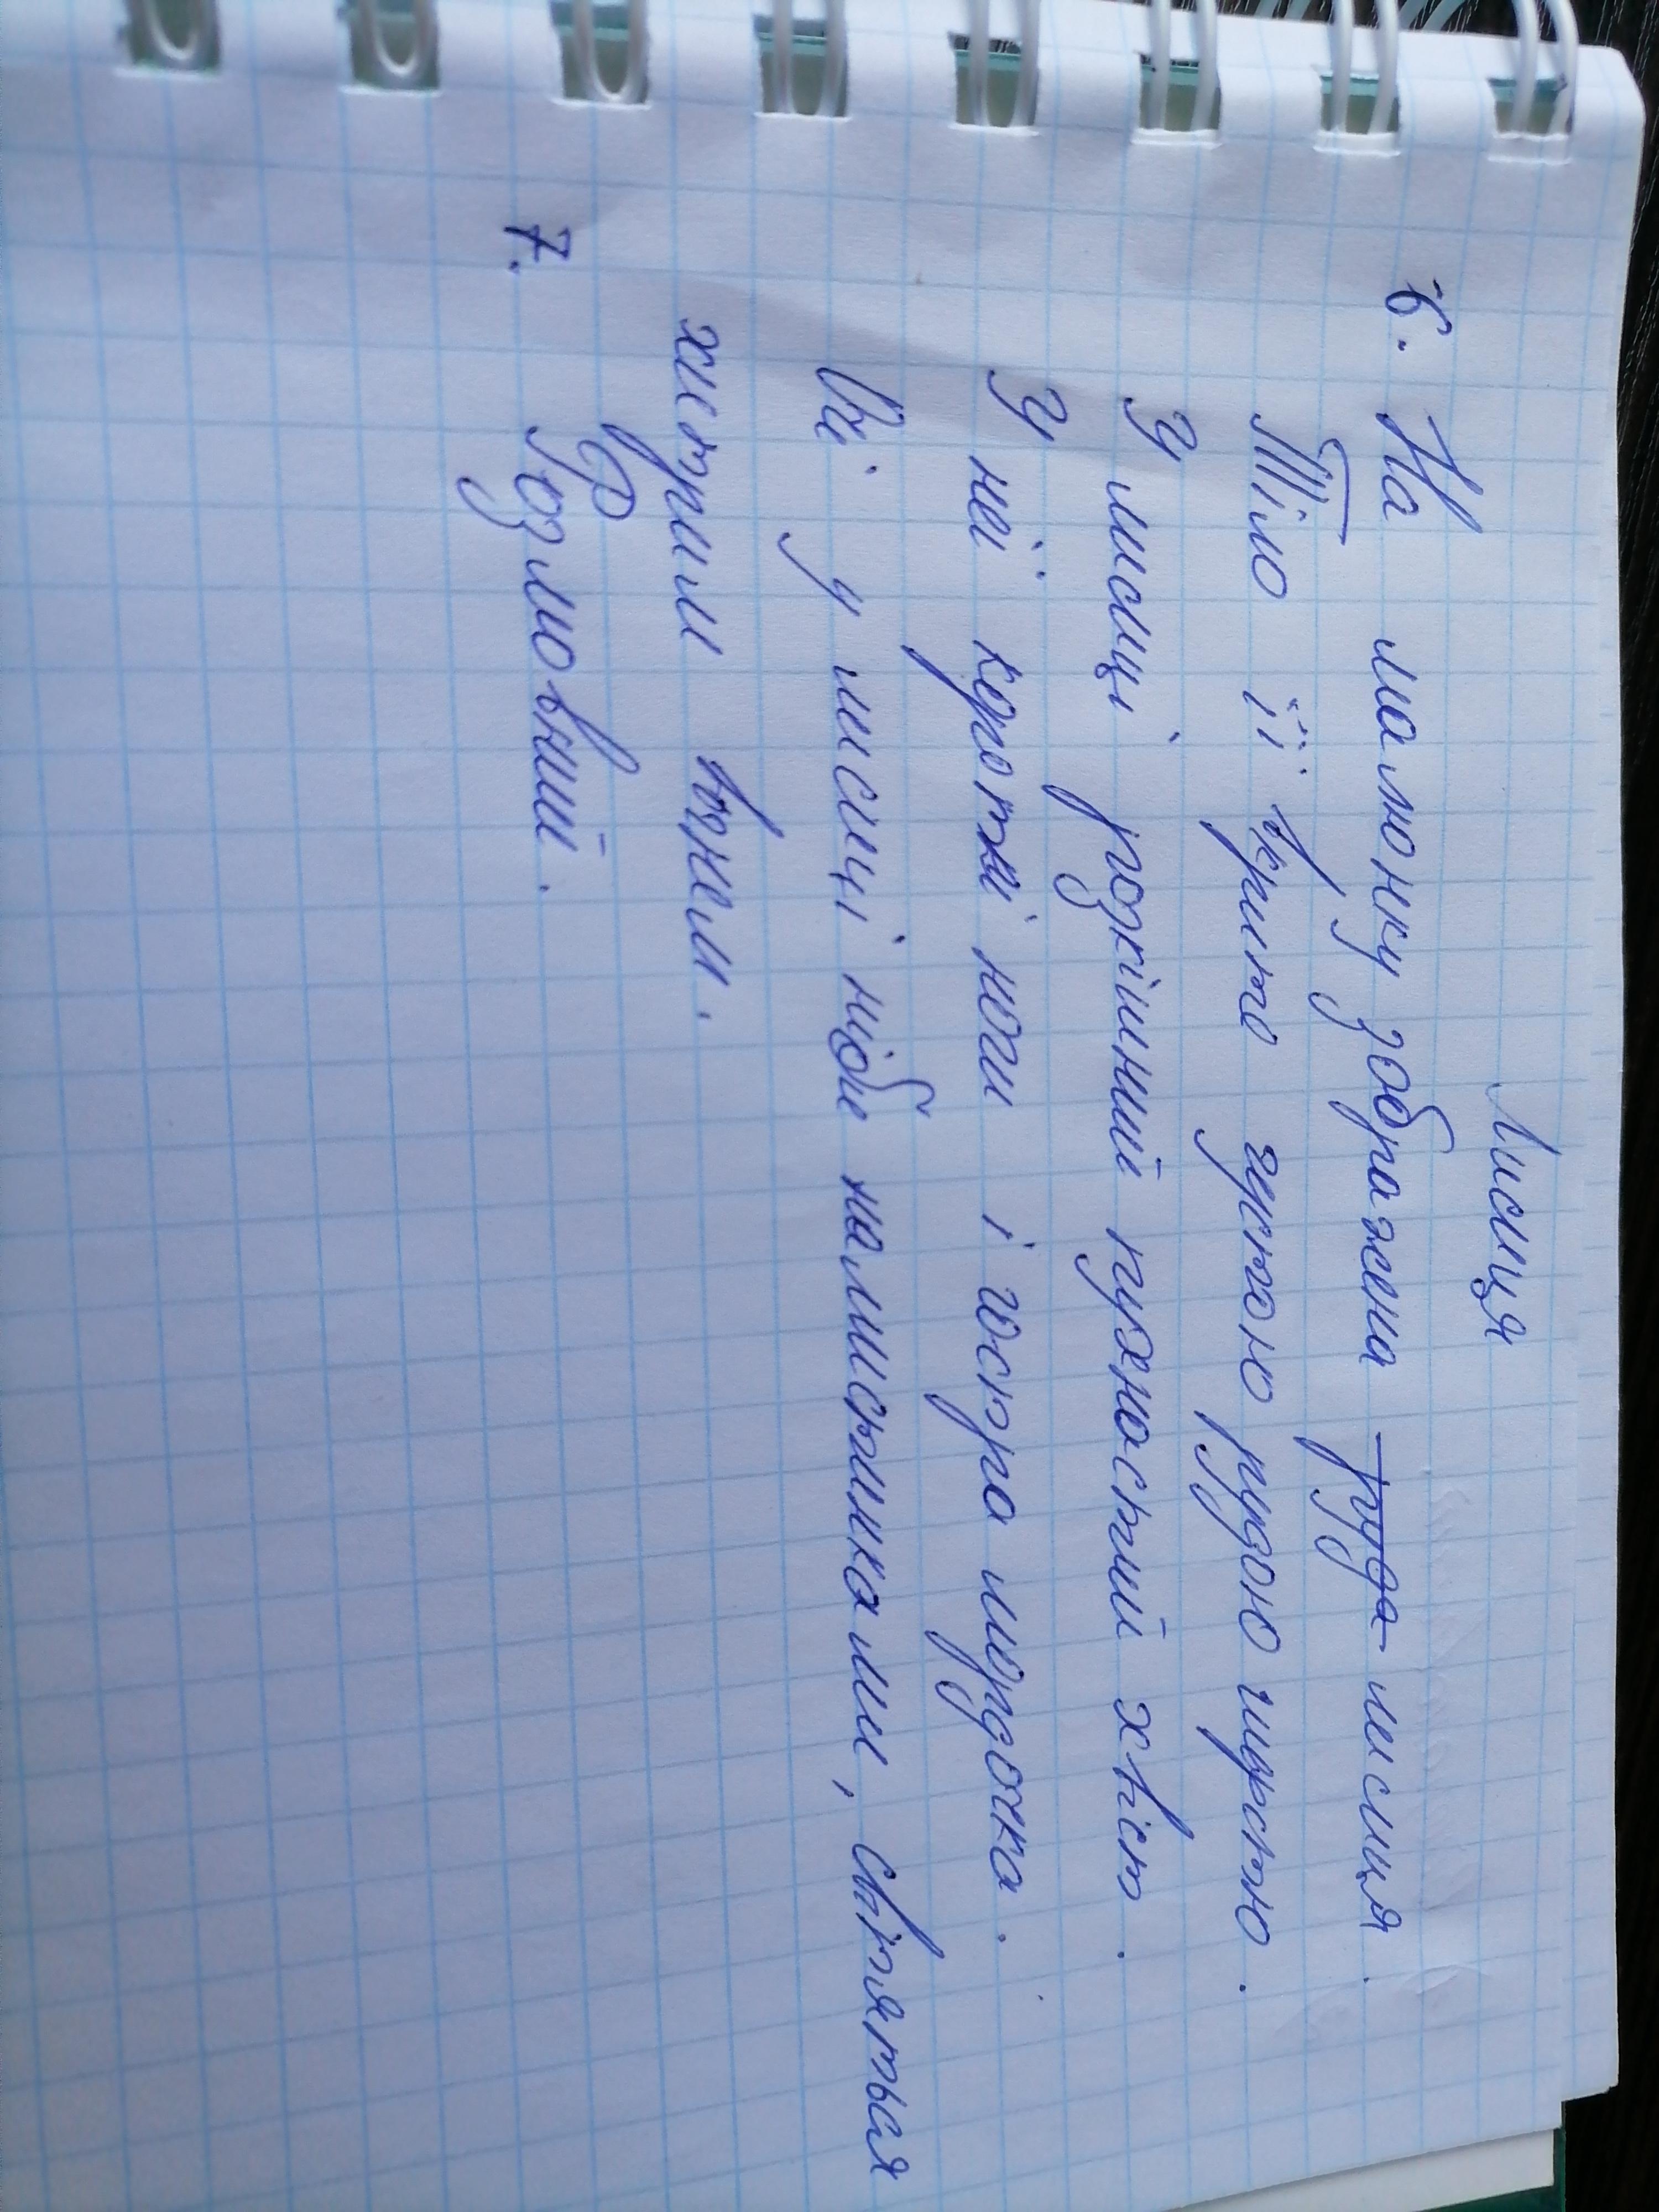 Лисиця
6. На малюнку зображена руда лисиця.
Тіло її вкрите густою рудою шерстю.
У лисиці розкішний пухнастий хвіст.
У неї короткі ноги і гостра мордочка.
Очі у лисиці ніби намистинками, світяться
хитрим вогнем.
7. Розмовний.